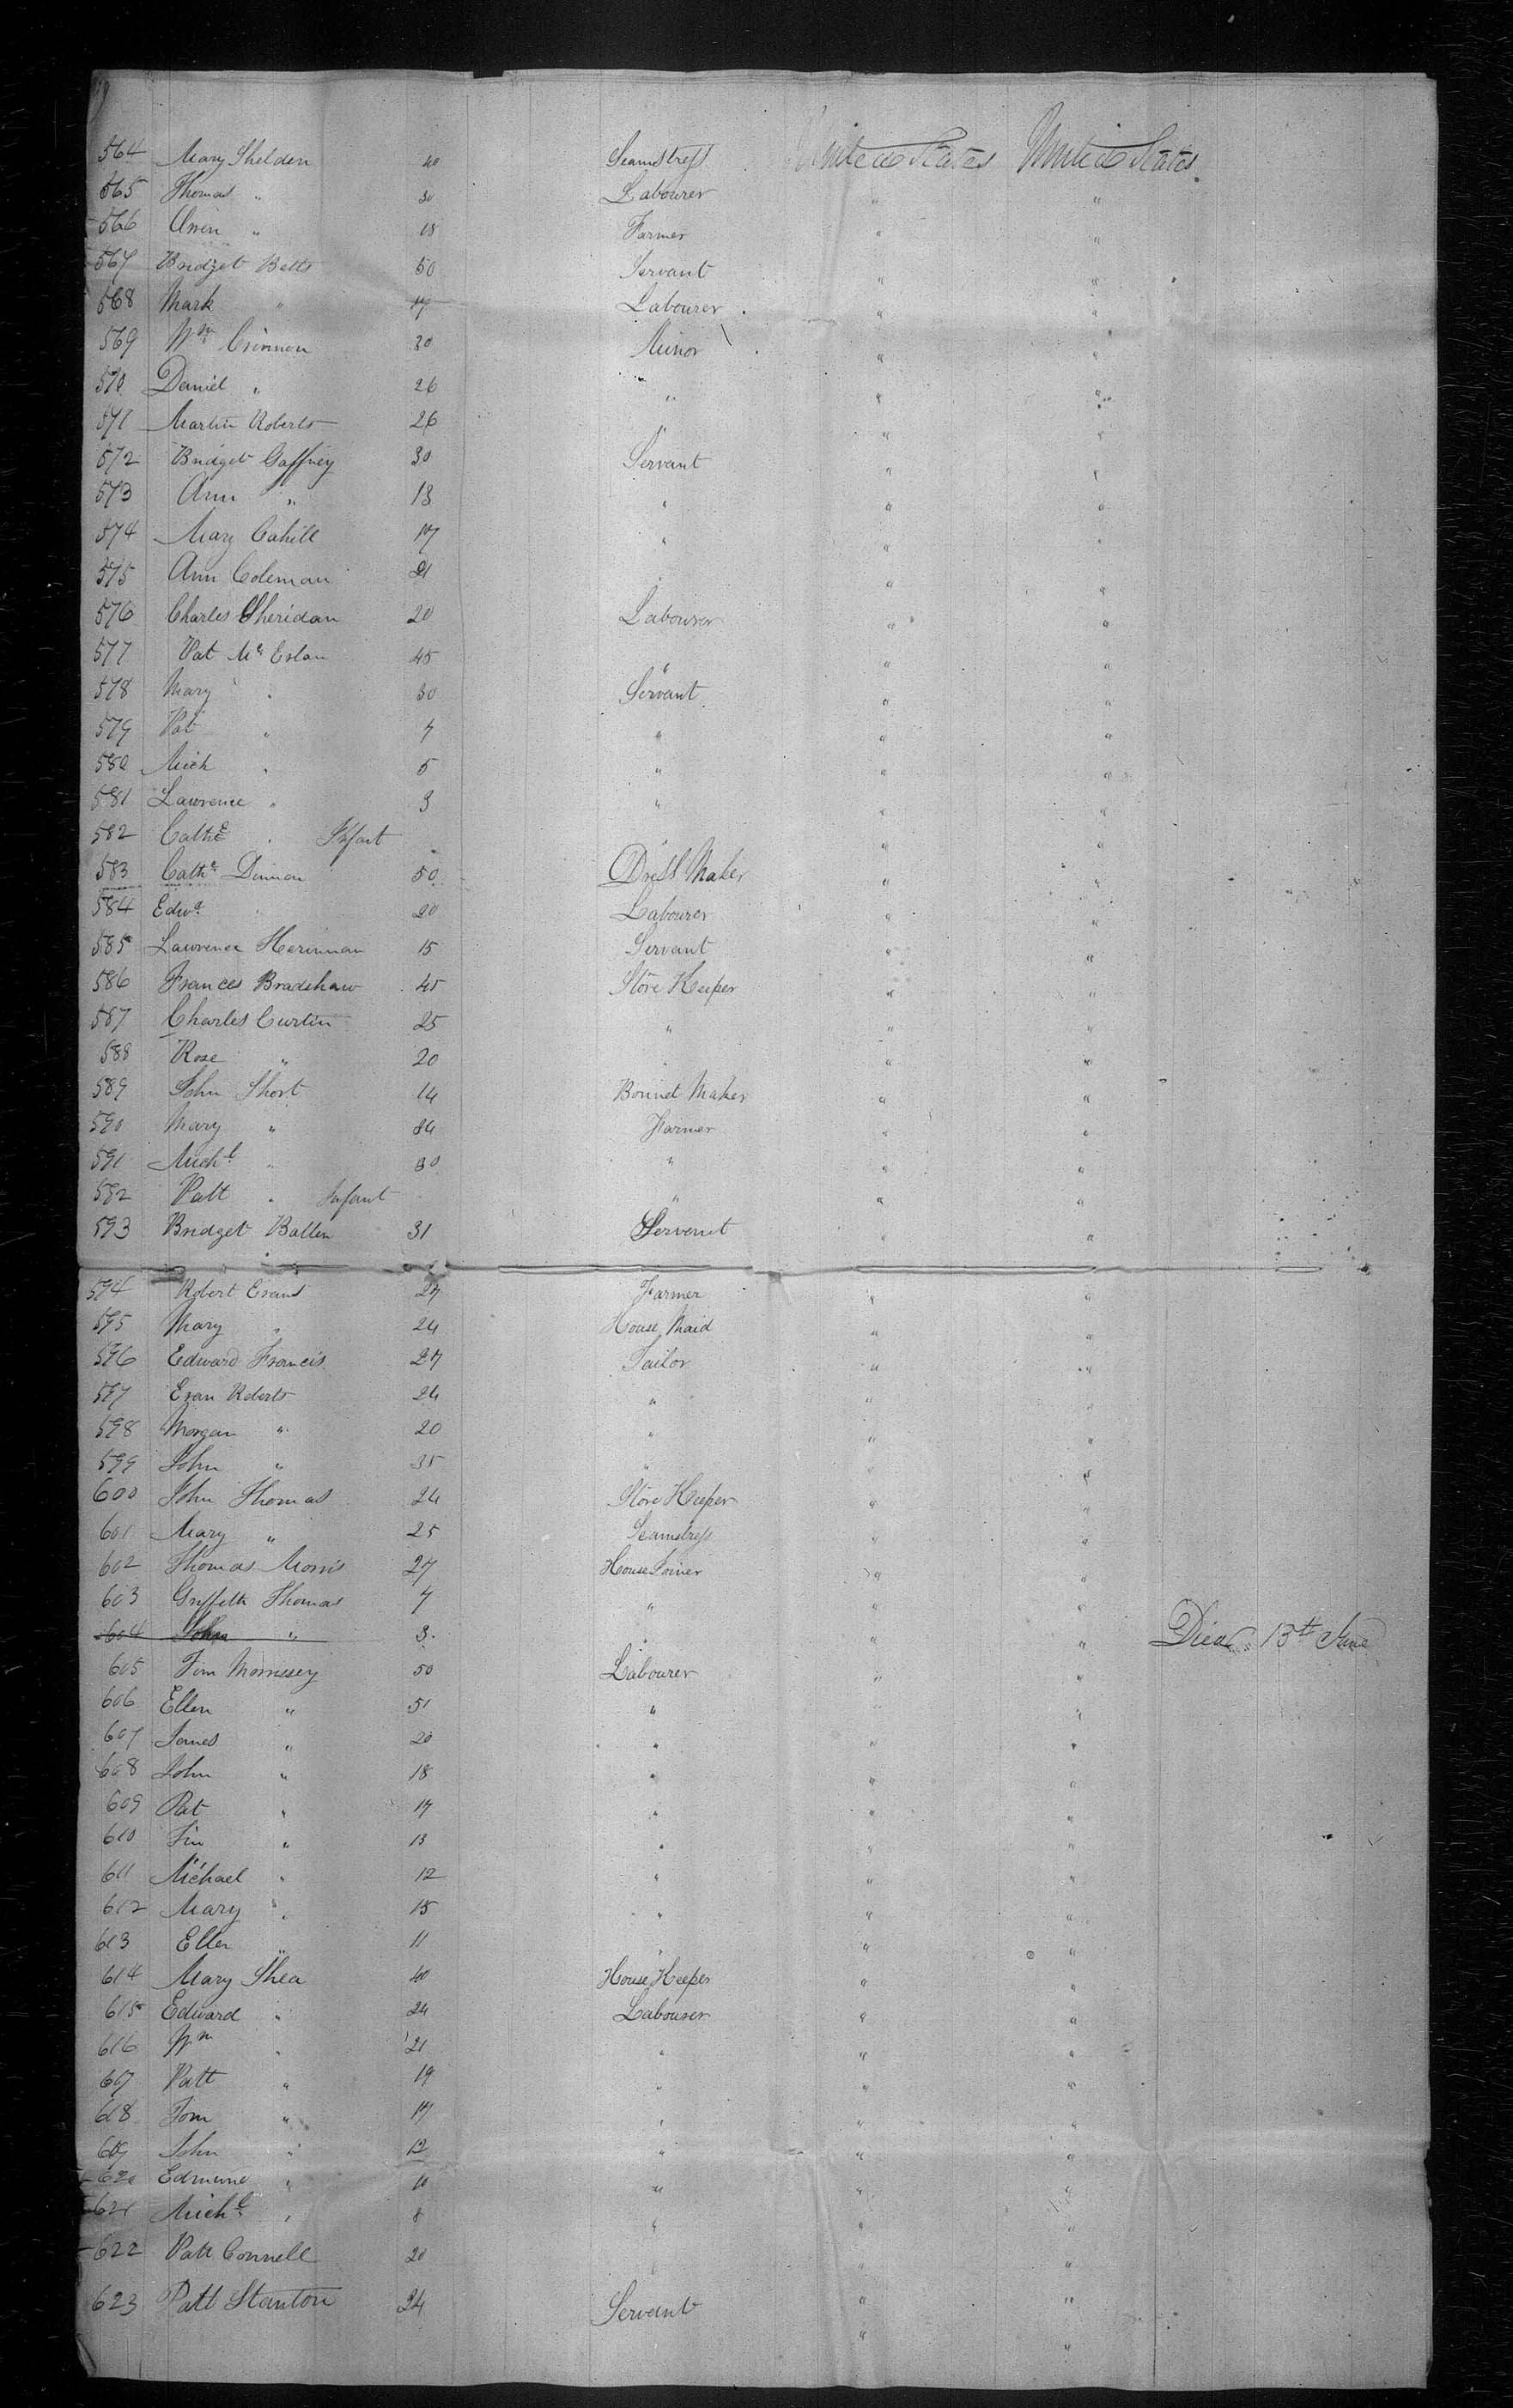 564 Mary Shelden 40 Seamstress United States United States
565 Thomas " 30 Labourer " "
566 " 18 Farmer " "
567 Bridget Betts 50 Servant " "
568 Mark " 17 Labourer " "
569 Wm Crinnon 30 Minor " "
570 Daniel " 26 " " "
571 Martin Roberts 26 " " "
572 Bridget Gaffney 30 Servant " "
573 Ann " 13 " " "
574 Mary Cahill 17 " " "
575 Ann Coleman 21 " " "
576 Charles Sheridan 20 Labourer " "
577 Pat 45 " " "
578 Mary " 30 Servant " "
579 Pat " 7 " " "
580 Mich " 5 " " "
581 Lawrence " 3 " " "
582 Cathe " Infant " " "
583 Cathe 50 Dress Maker " "
584 Edwd " 20 Labourer " "
585 Lawrence 15 Servant " "
586 Frances Bradshaw 45 Store Keeper " "
587 Charles Curtin 25 " " "
588 Rose " 20 " " "
589 John Short 14 Bonnet Maker " "
590 Mary " 34 Farmer " "
591 Michl " 30 " " "
592 Patt " Infant " " "
593 Bridget Batten 31 Servent " "
594 Robert Evans 27 Farmer " "
595 Mary " 24 House Maid " "
596 Edward Francis 27 Tailor " "
597 Evan Roberts 24 " " "
598 Morgan " 20 " " "
599 John " 35 " " "
600 John Thomas 24 Store Keeper " "
601 Mary " 25 Seamstress " "
602 Thomas Morris 27 House Joiner " "
603 Griffith Thomas 7 " " "
604 John " 3 " " " Died 13th June
605 Tim Morrissey 50 Labourer " "
606 Ellen " 51 " " "
607 James " 20 " " "
608 John " 18 " " "
609 Pat " 17 " " "
610 Tim " 13 " " "
611 Michael " 12 " " "
612 Mary " 15 " " "
613 Ellen " 11 " " "
614 Mary Shea 40 House Keeper " "
615 Edward " 24 Labourer " "
616 Wm " 21 " " "
617 Patt " 19 " " "
618 Tom " 17 " " "
619 John " 12 " " "
620 Edmund " 10 " " "
621 Michl " 8 " " "
622 Patt Connell 20 " " "
623 Patt Stanton 24 Servant " "
" "